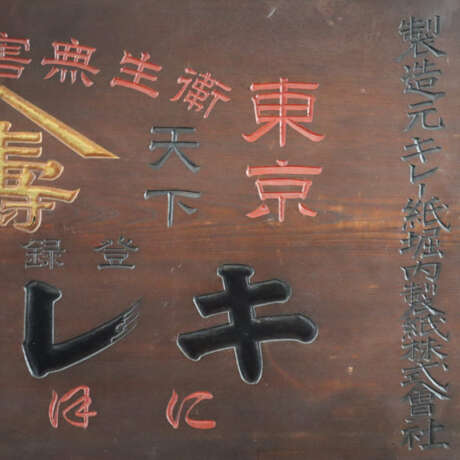 製造元キレー紙堀内製紙株式會社
東京
衛生無害
天下
登録
キレ
にほ